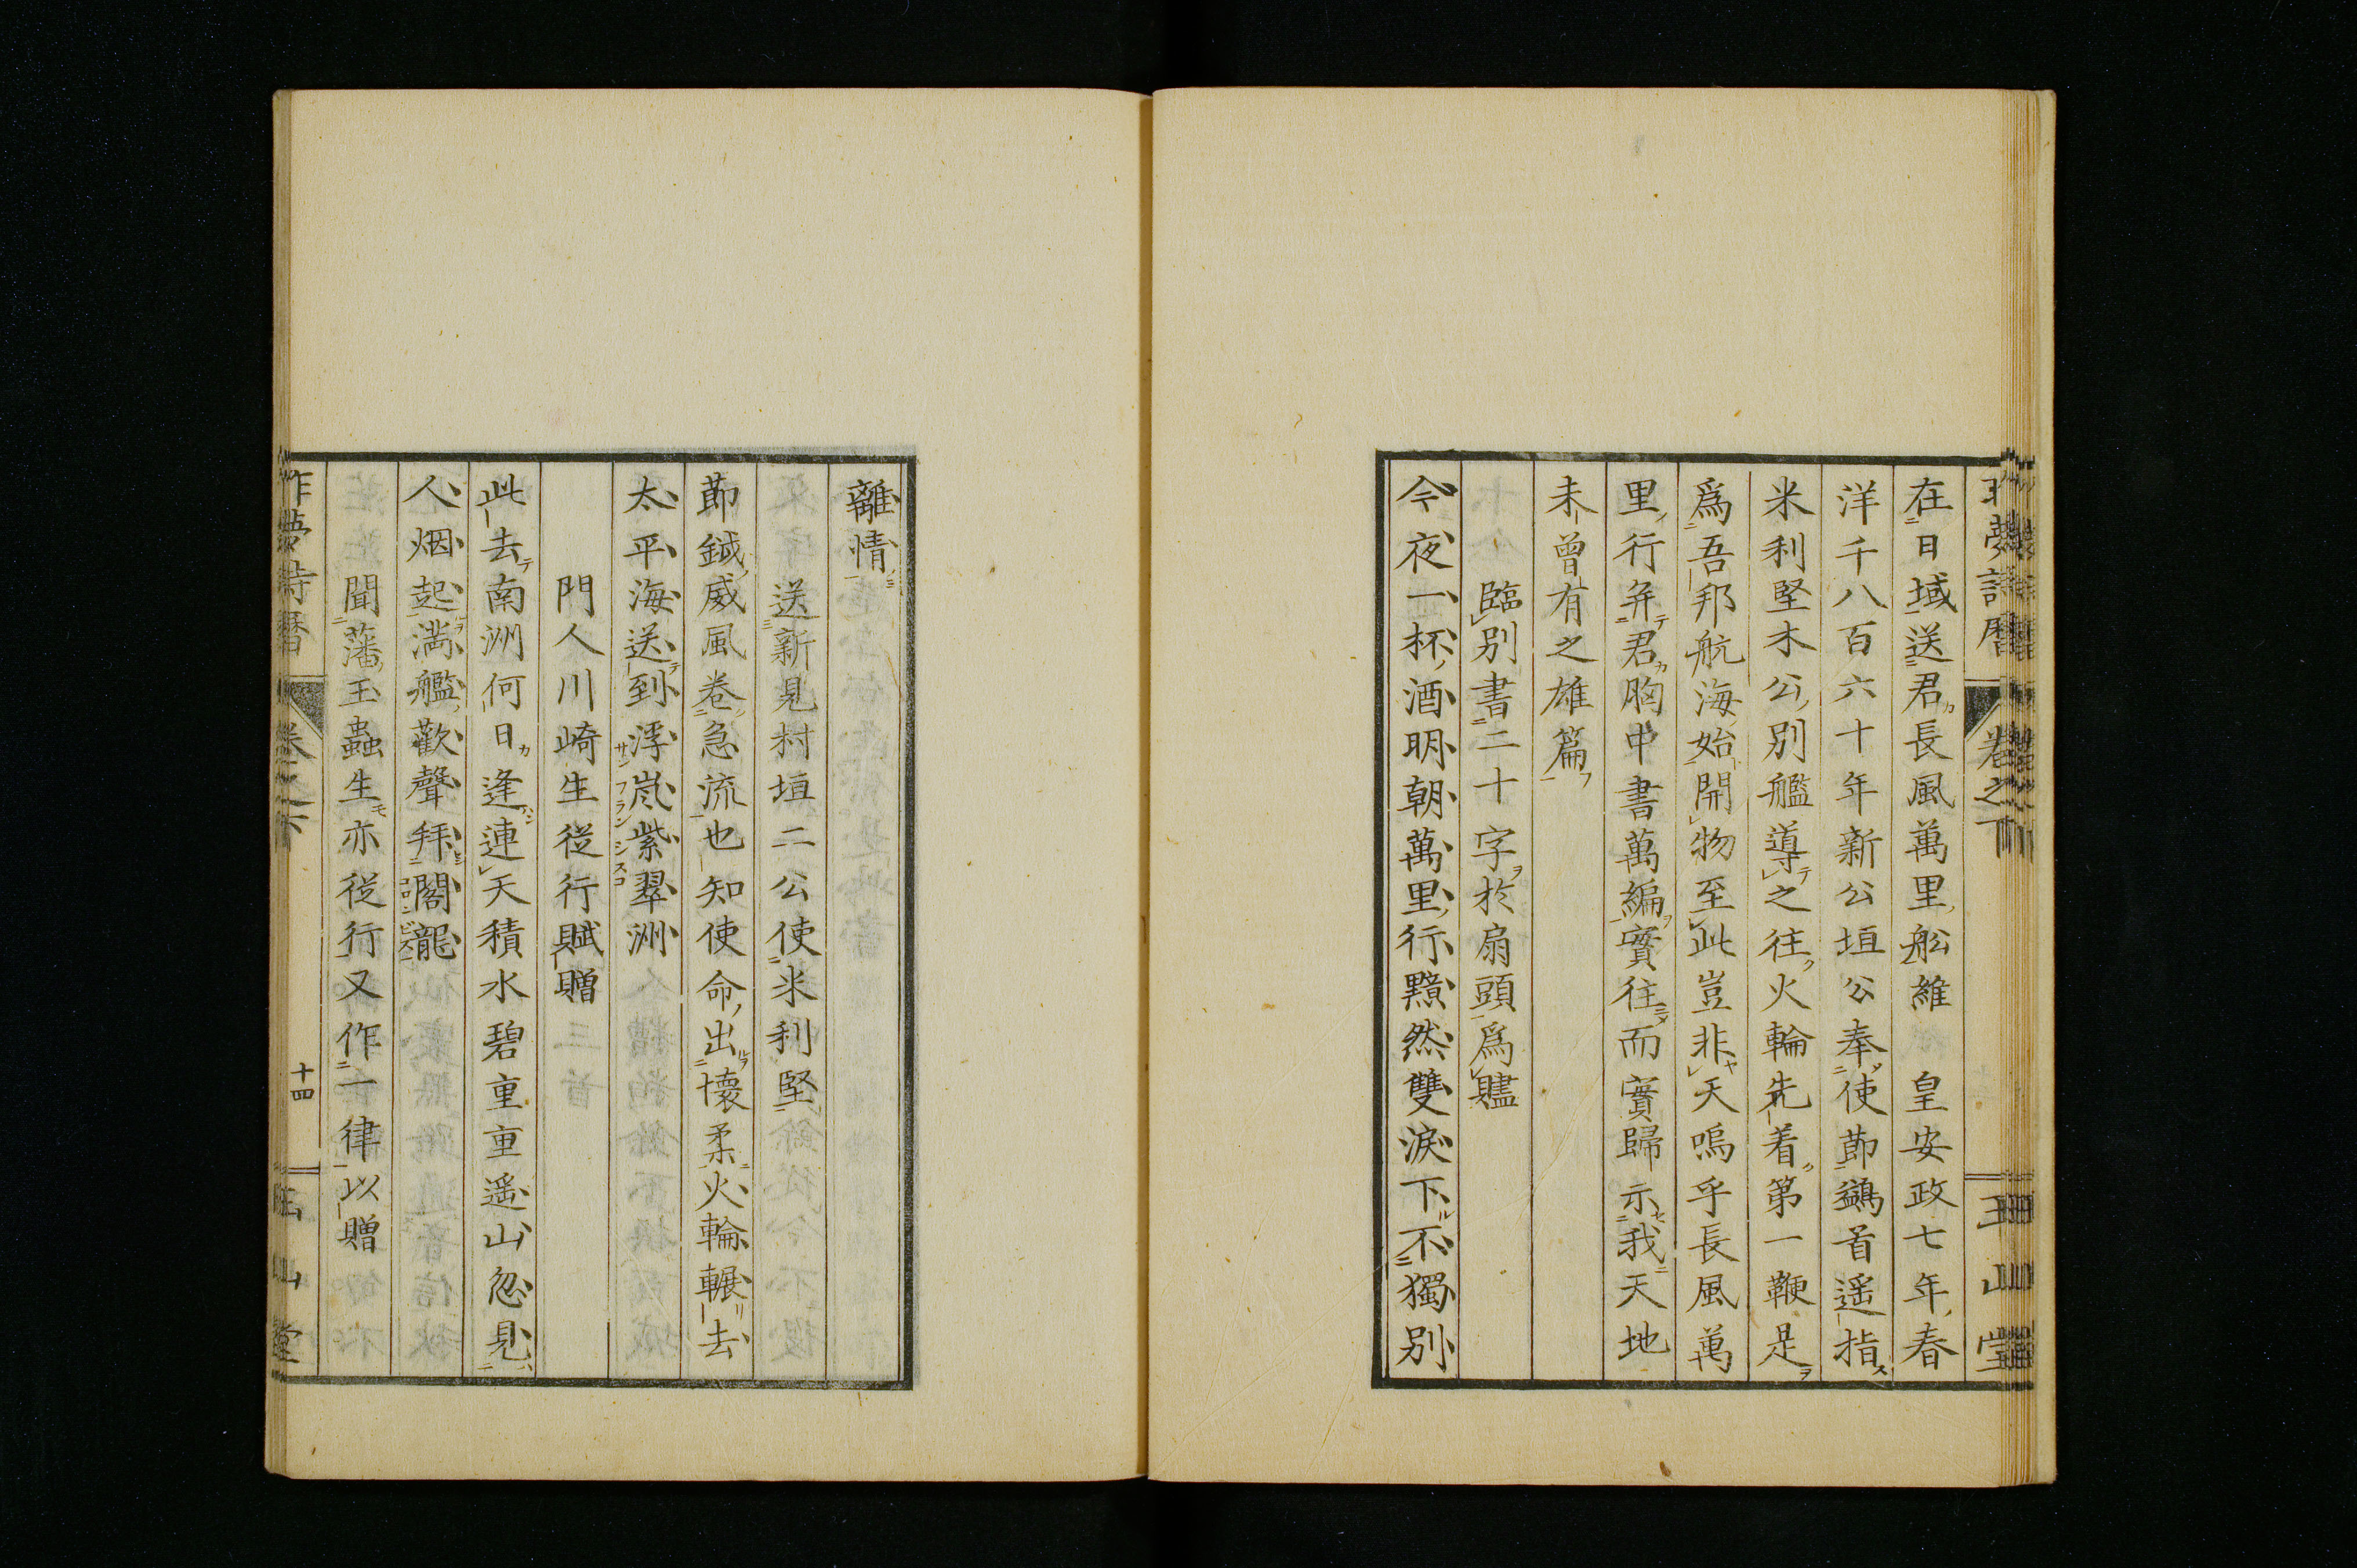 在日域送君長風萬里舩維　皇安政七年春
洋千八百六十年新公垣公奉使節鷁首遥指
米利堅木公別艦導之往火輪先着第一鞭是
爲吾邦航海始開物至此豈非天嗚乎長風萬
里行弁君胸中書萬編實往而實歸示我天地
未曾有之雄篇
臨別書二十字於扇頭爲贐
今夜一杯酒明朝萬里行黯然雙淚下不獨別
離情
送新見村垣二公使米利堅
節鉞威風卷急流也知使命出懷柔火輪輾去
太平海送到浮嵐紫翠洲
サンフランシスコ
門人川崎生從行賦贈
此去南洲何日逢連天積水碧重重遥山忽見
人烟起滿艦歡聲拜閣龍
コロンビス
聞藩玉蟲生亦從行又作一律以贈
卷之下
十四
玉山堂